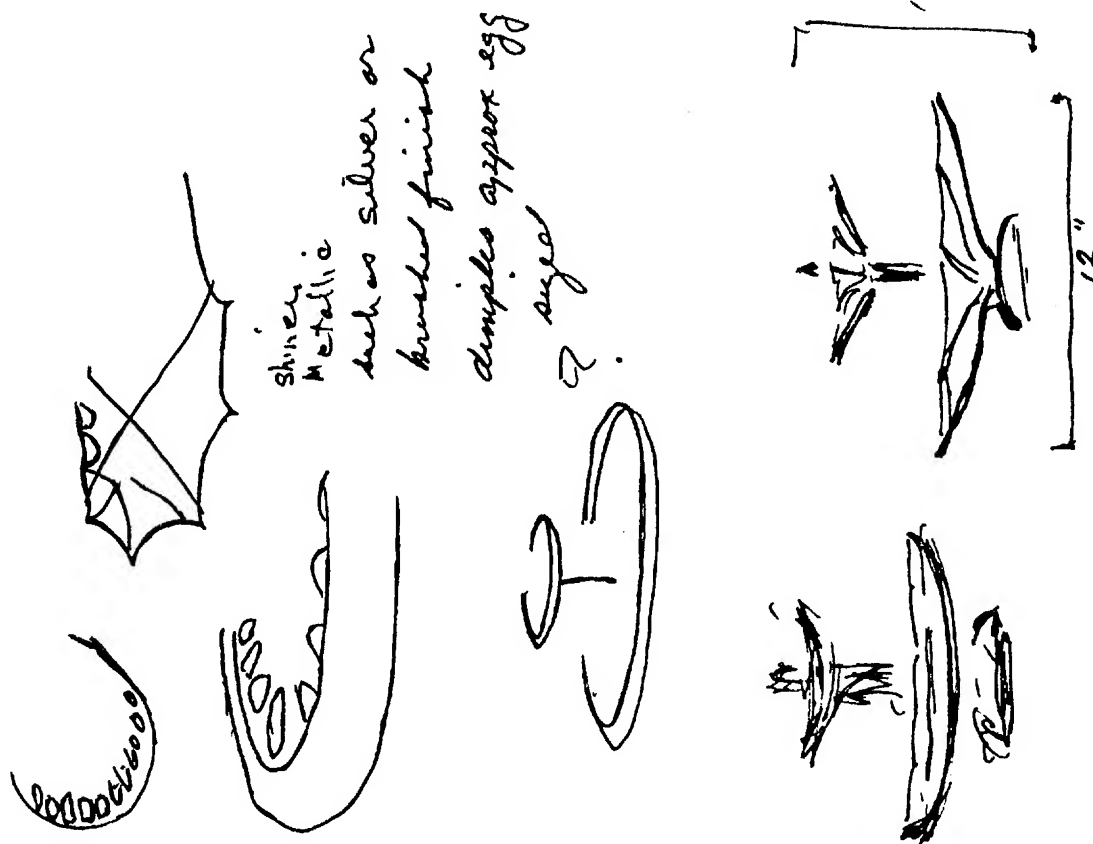 shiney
Metallic
such as silver or
brushed finish
dimples approx egg
sized
?
12"